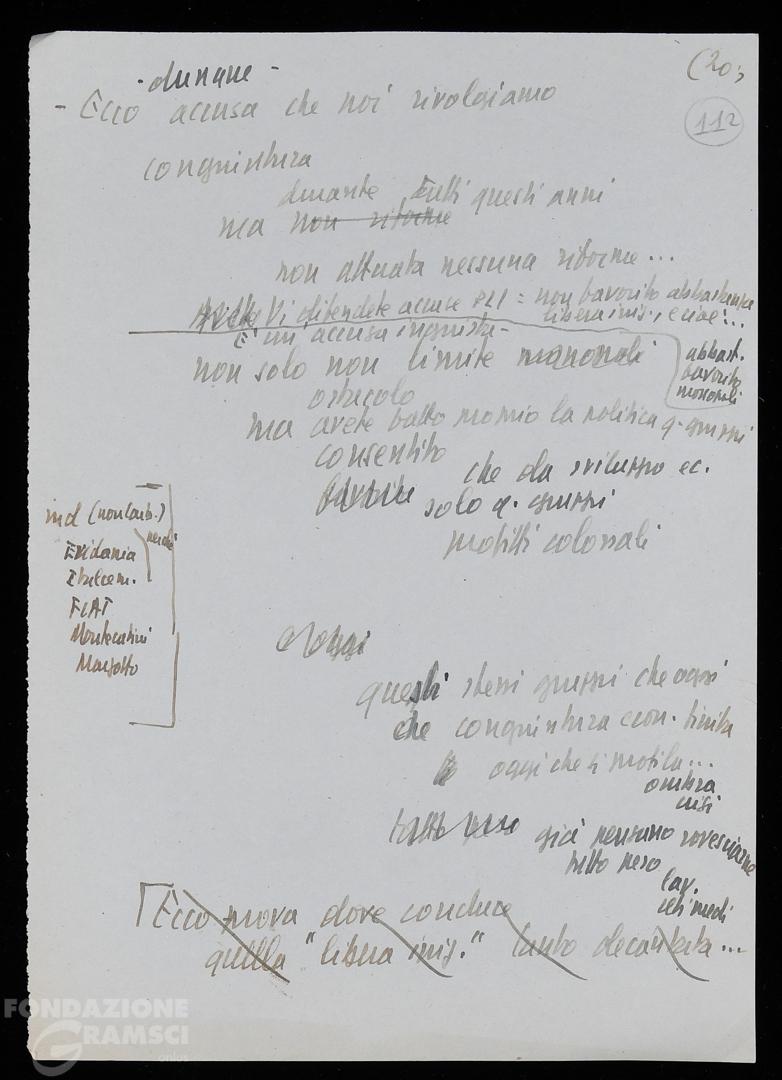 (20;
112
- dunque -
- Ecco accusa che noi rivolgiamo
congiuntura
durante tutti questi anni
ma non riforme
non attuata nessuna riforma...
Vi difendete accuse PLI = non favorito abbastanza
libera iniz., e cioè...
È un'accusa ingiusta -
abbast.
favorito
monopoli
non solo non limite monopoli
ostacolo
ma avete fatto proprio la politica q. gruppi
consentito
favorire
che da sviluppo ec.
solo q. gruppi
profitti colossali
ind (non comb.)
perché
Eridania
Italcem.
FIAT
Montecatini
Marzotto
e oggi
questi stessi gruppi che oggi
che congiuntura econ. finita
oggi che si profila...
ombra
crisi
già pensano rovesciare
tutto peso
lav.
ceti medi
Ecco prova dove conduce
quella "libera iniz." tanto decantata...
FONDAZIONE
GRAMSCI
onlus